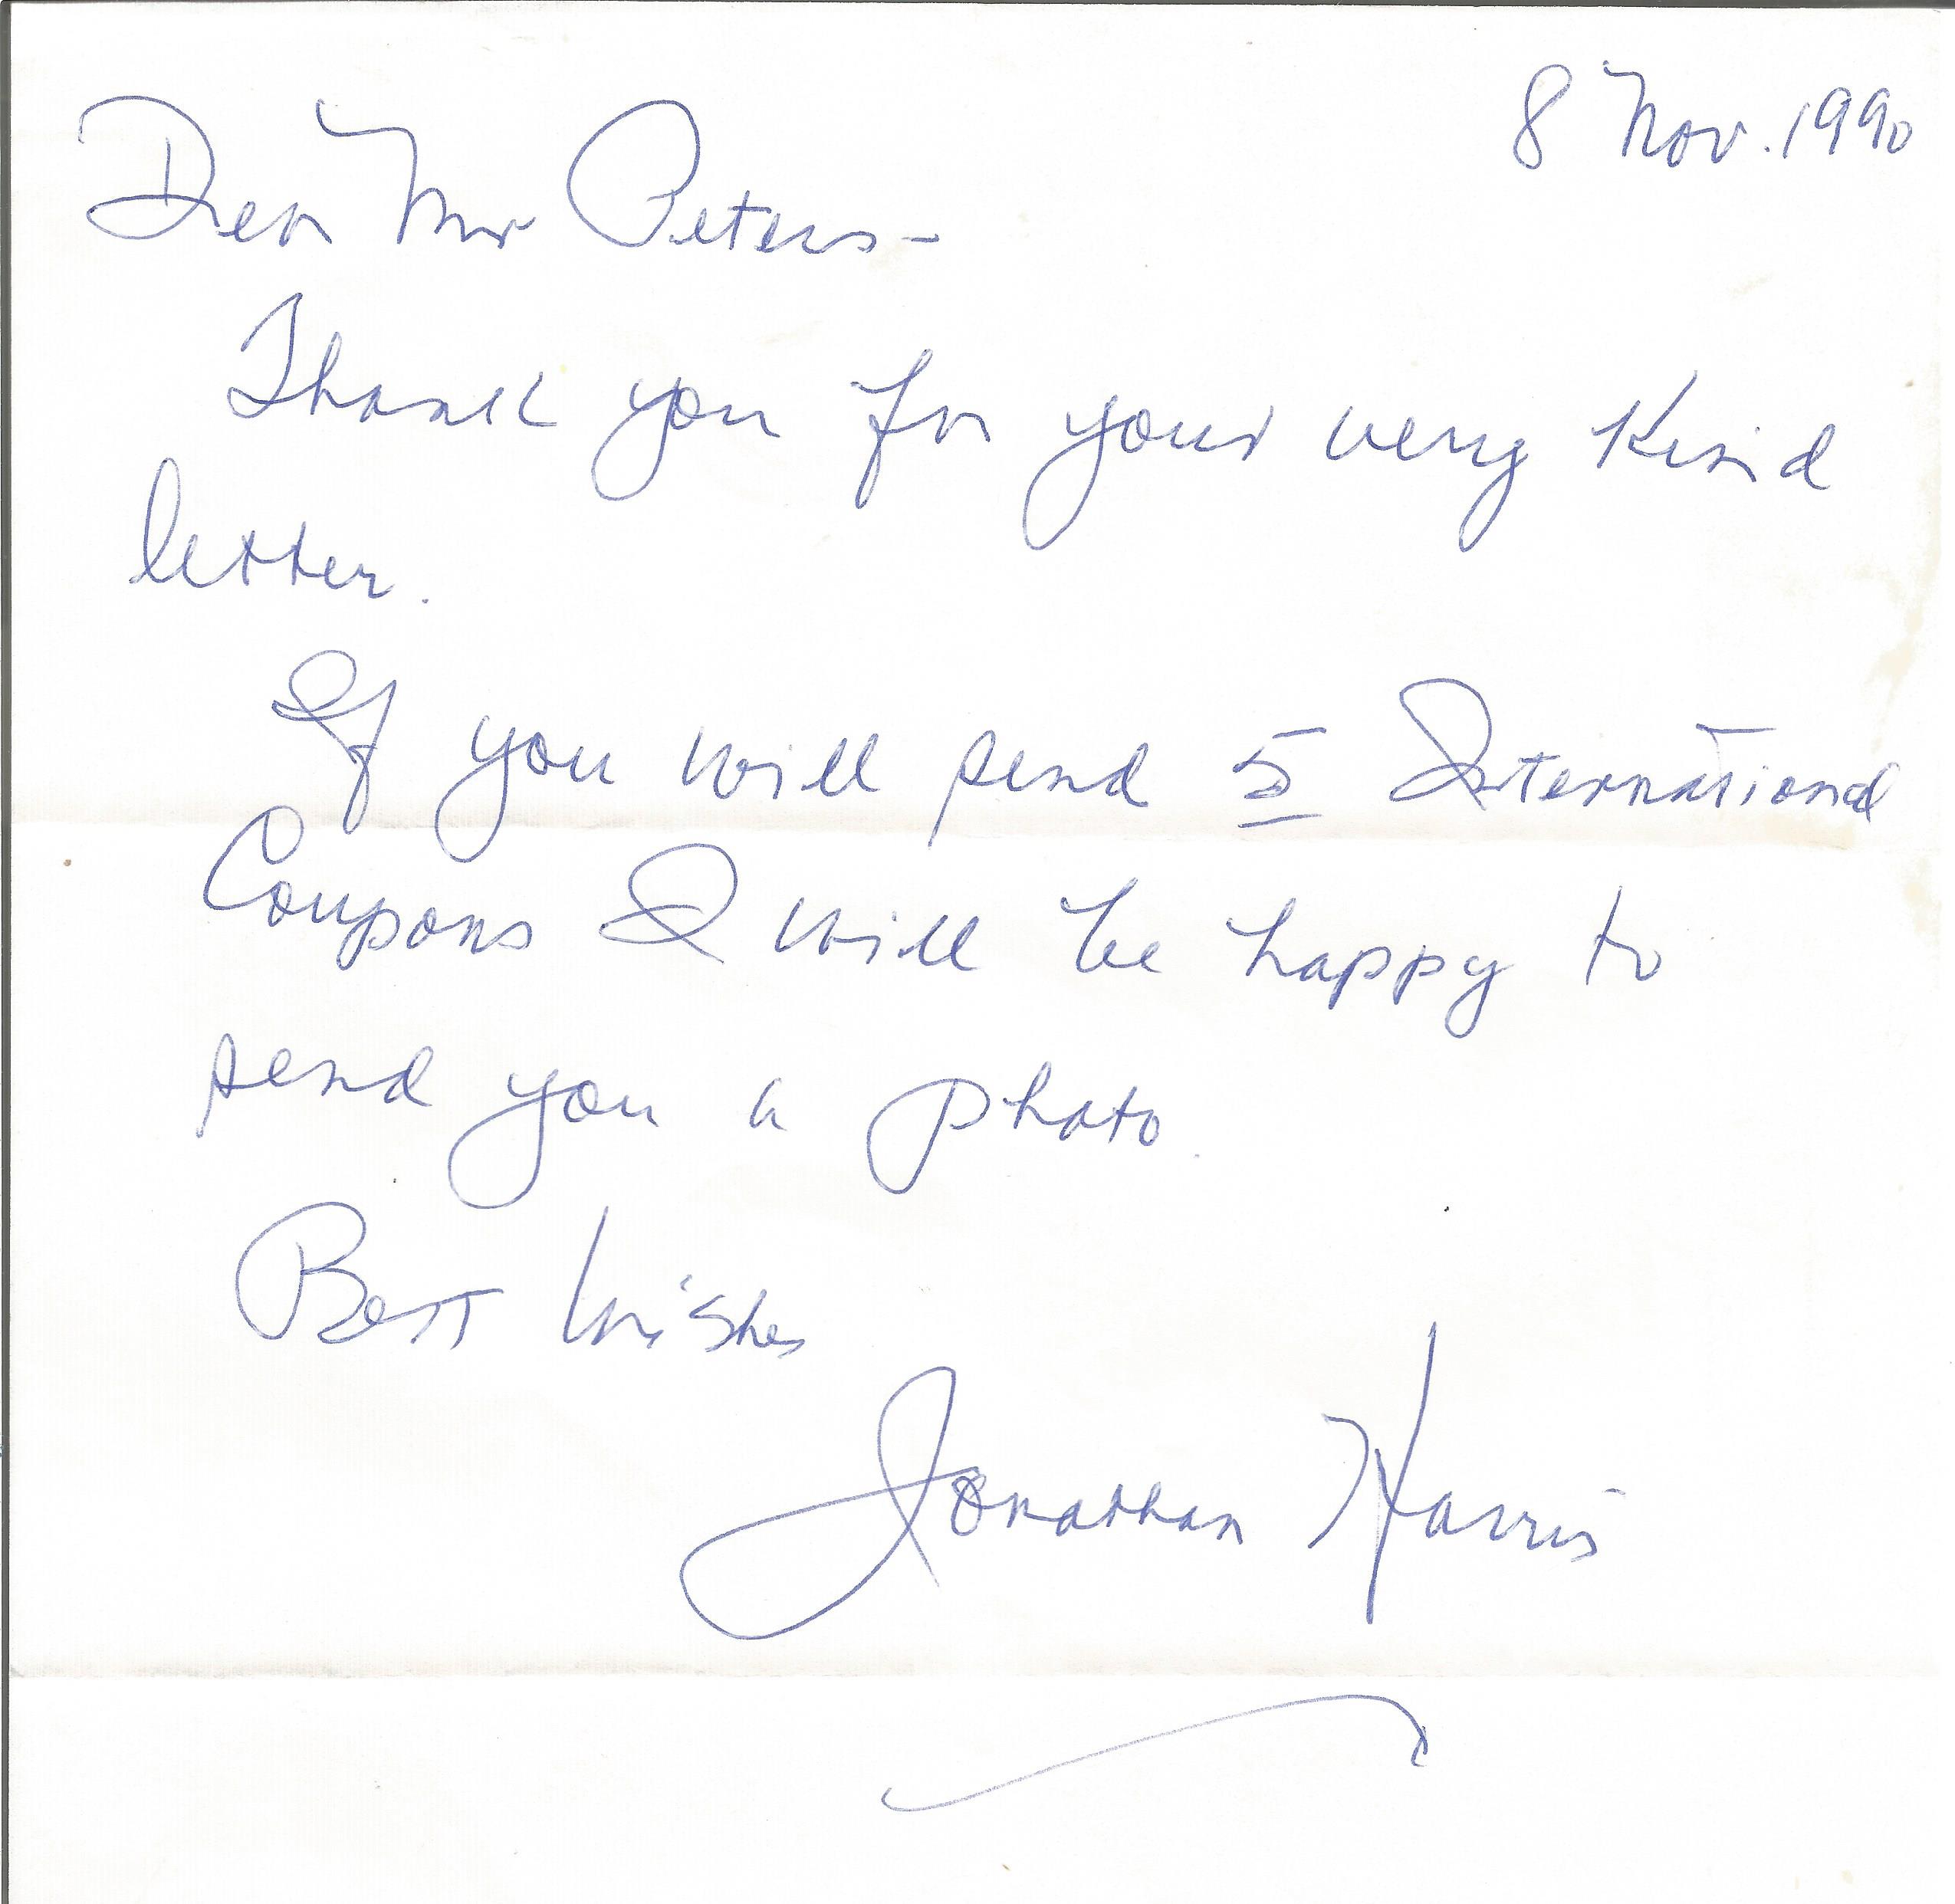 8 Nov. 1990
Dear Mr Peters-
Thank you for your very kind
letter.
If you will send 5 International
Coupons I will be happy to
send you a photo.
Best Wishes
Jonathan Harris